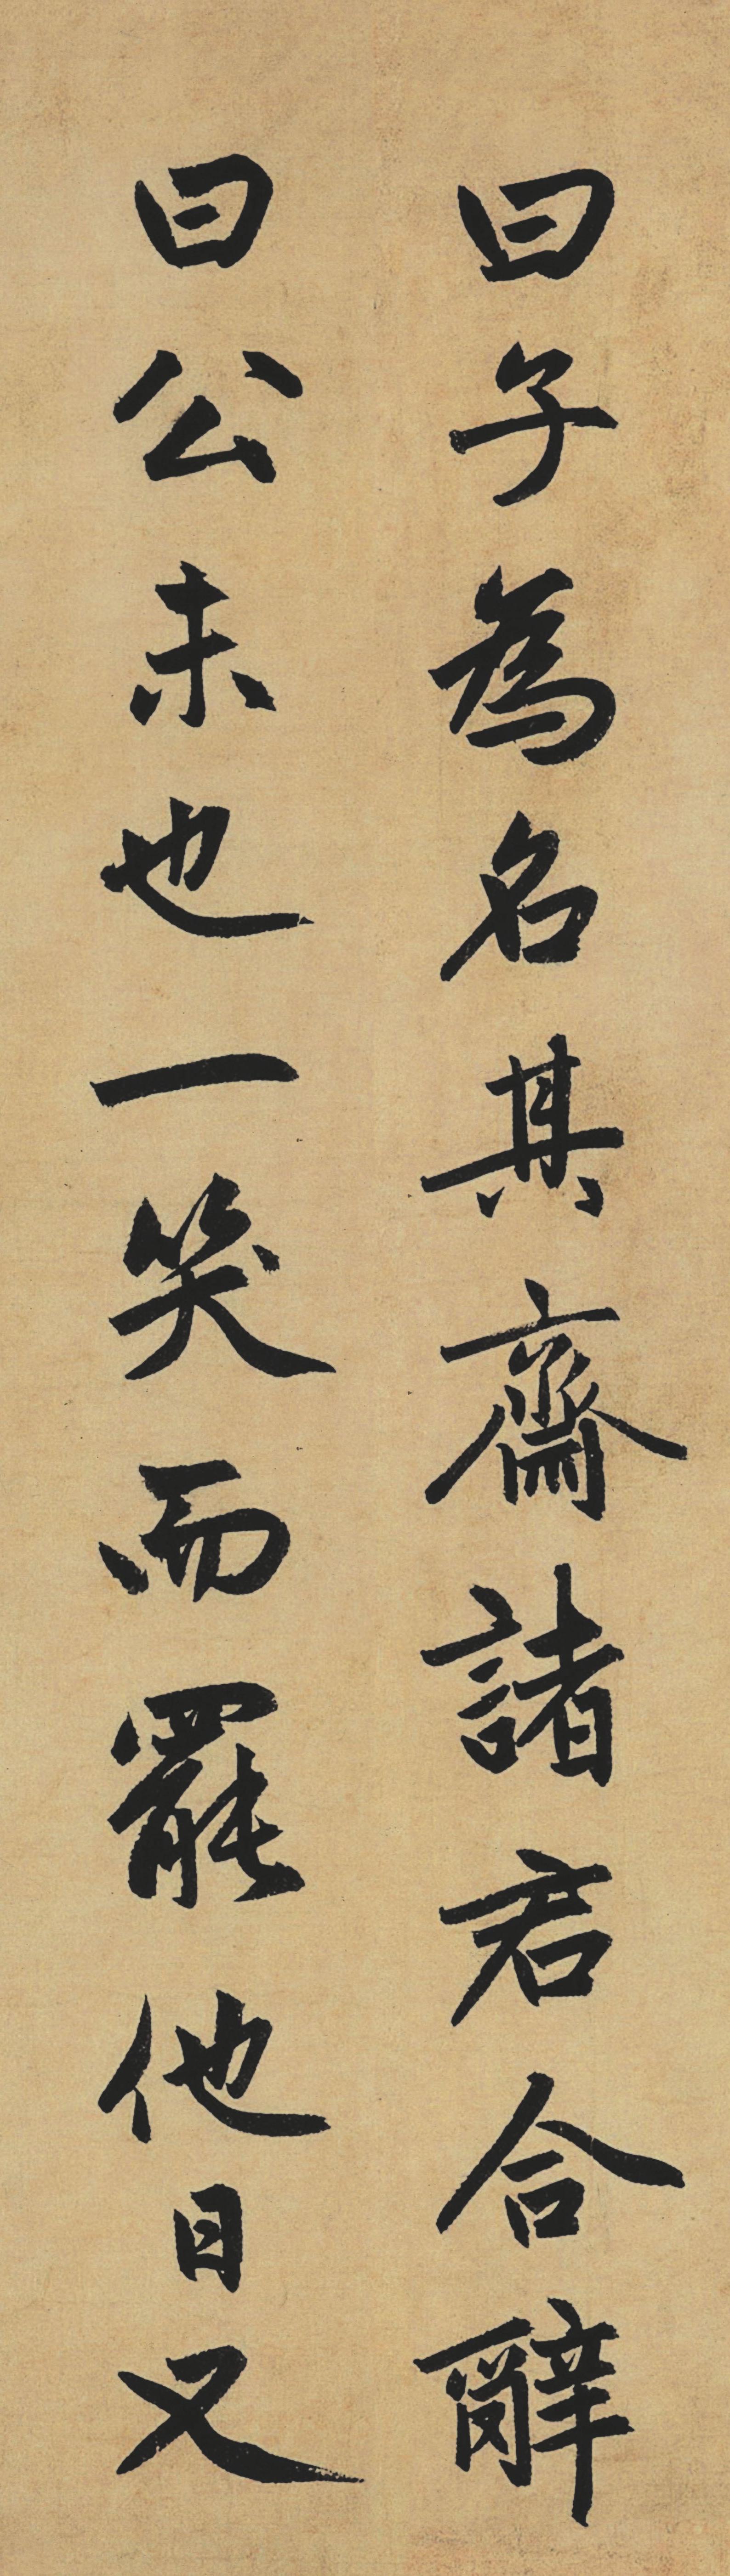 曰子為名其齋諸君合辭
曰公未也一笑而罷他日又